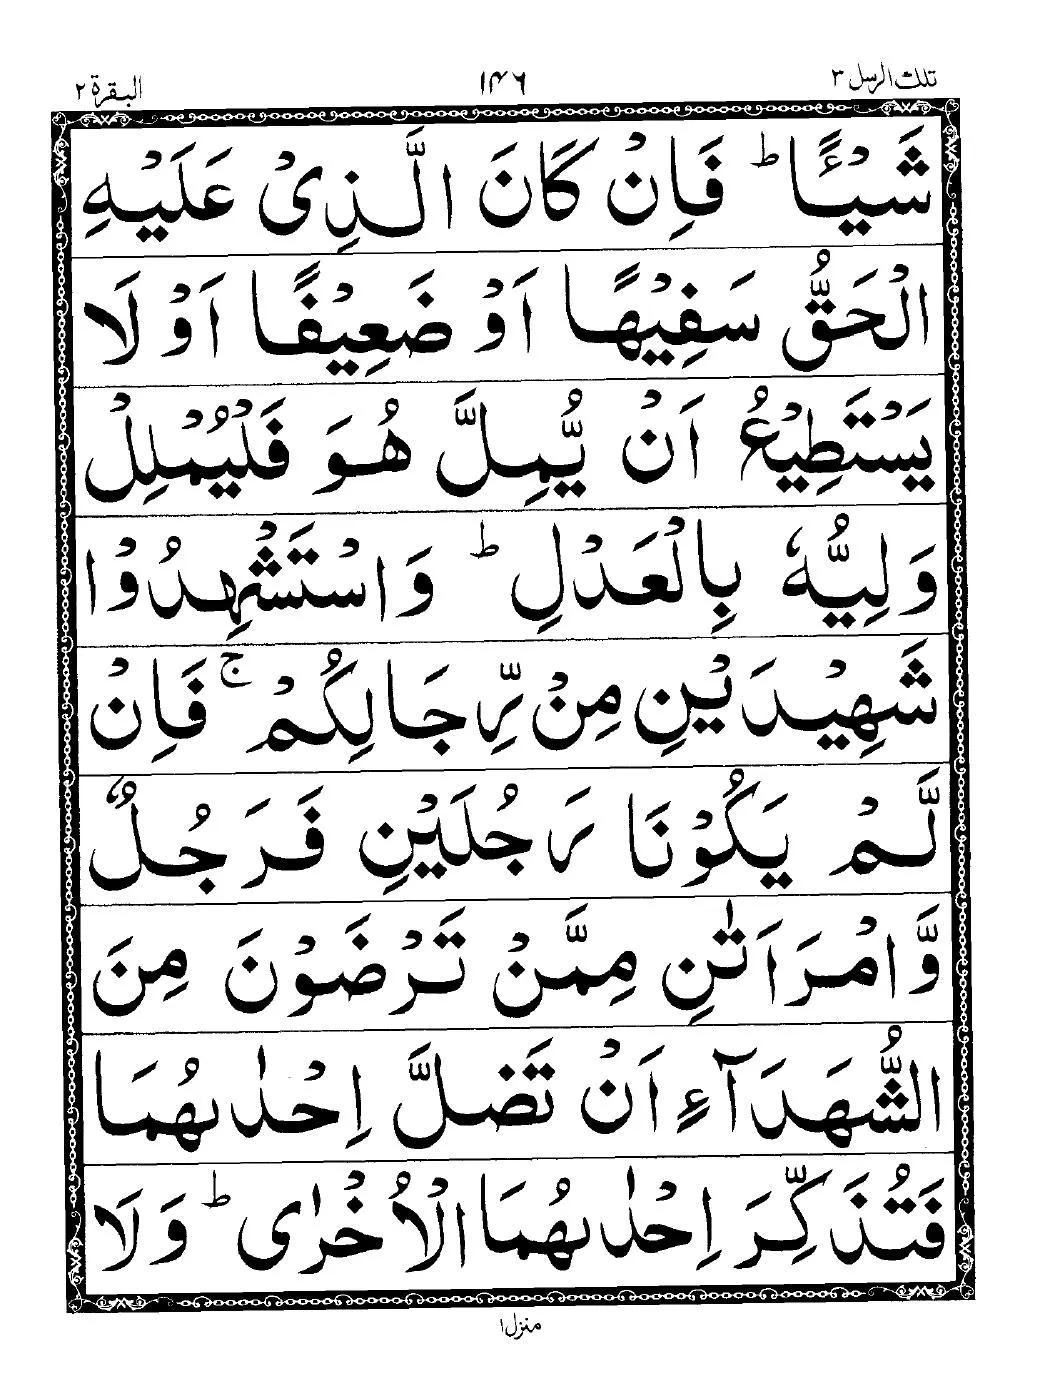 تلك الرسل ٣
١٤٦
البقرة ٢
شَيْـًٔا ؕ فَاِنْ كَانَ الَّذِیْ عَلَیْهِ
الْحَقُّ سَفِیْهًا اَوْ ضَعِیْفًا اَوْ لَا
یَسْتَطِیْعُ اَنْ یُّمِلَّ هُوَ فَلْیُمْلِلْ
وَلِیُّهٗ بِالْعَدْلِ ؕ وَاسْتَشْهِدُوْا
شَهِیْدَیْنِ مِنْ رِّجَالِكُمْ ۚ فَاِنْ
لَّمْ یَكُوْنَا رَجُلَیْنِ فَرَجُلٌ
وَّامْرَاَتٰنِ مِمَّنْ تَرْضَوْنَ مِنَ
الشُّهَدَآءِ اَنْ تَضِلَّ اِحْدٰىهُمَا
فَتُذَكِّرَ اِحْدٰىهُمَا الْاُخْرٰی ؕ وَلَا
منزل ۱